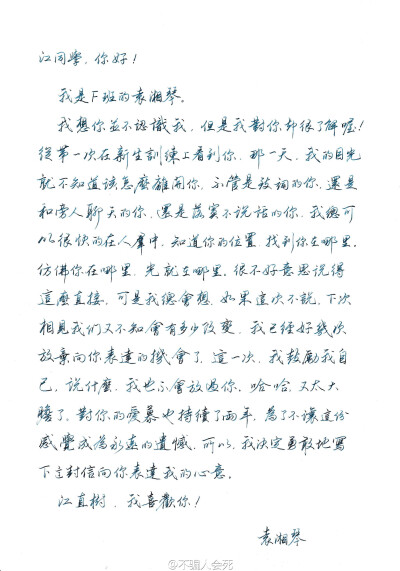 江同學，你好！
我是F班的袁湘琴。
我想你並不認識我，但是我對你却很了解喔！
從第一次在新生訓練上看到你，那一天，我的目光
就不知道該怎麼離開你，不管是致詞的你、還是
和旁人聊天的你、還是落寞不說話的你，我總可
以很快的在人羣中，知道你的位置，找到你在哪里，
仿佛你在哪里，光就在哪里，很不好意思說得
這麼直接，可是我總會想，如果這次不說，下次
相見我們又不知會有多少改變，我已經好幾次
放棄向你表達的機會了，這一次，我鼓勵我自
己，說什麼，我也不會放過你，哈哈，又太大
膽了，對你的愛慕也持續了兩年，為了不讓這份
感覺成為永遠的遺憾，所以，我決定勇敢地寫
下这封信向你表達我的心意。
江直樹，我喜歡你！
袁湘琴
@不骗人会死